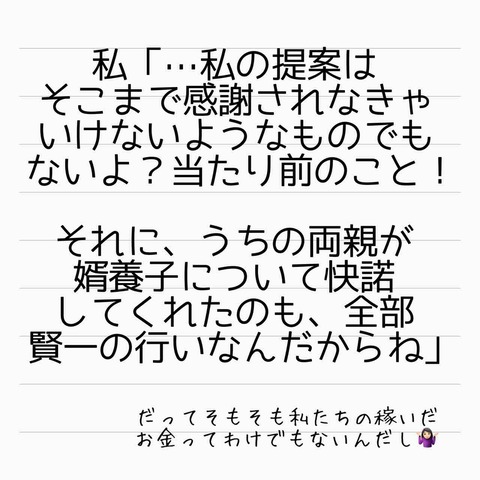 私「…私の提案は
そこまで感謝されなきゃ
いけないようなものでも
ないよ？当たり前のこと！
それに、うちの両親が
婿養子について快諾
してくれたのも、全部
賢一の行いなんだからね」
だってそもそも私たちの稼いだ
お金ってわけでもないんだし🤷🏻‍♀️